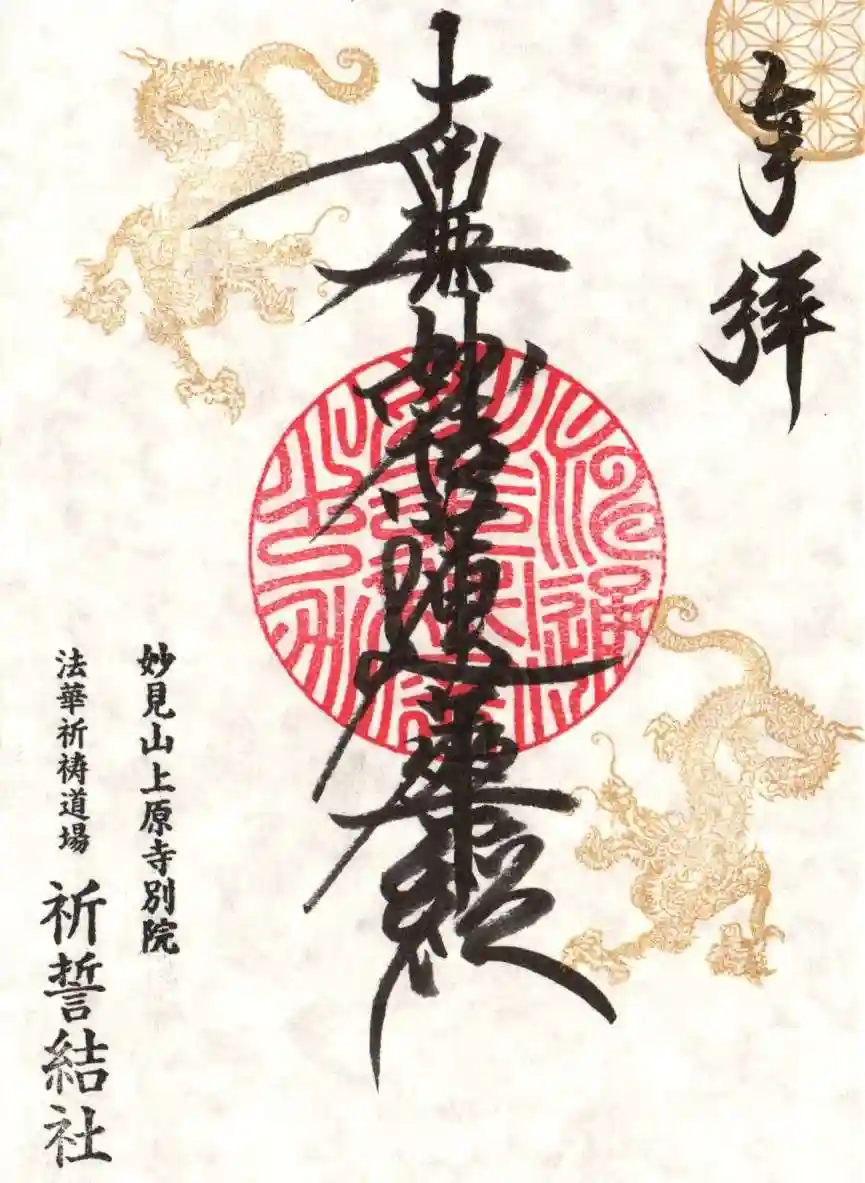 奉拝
南無妙法蓮華経
妙見山上原寺別院
法華祈祷道場 祈誓結社